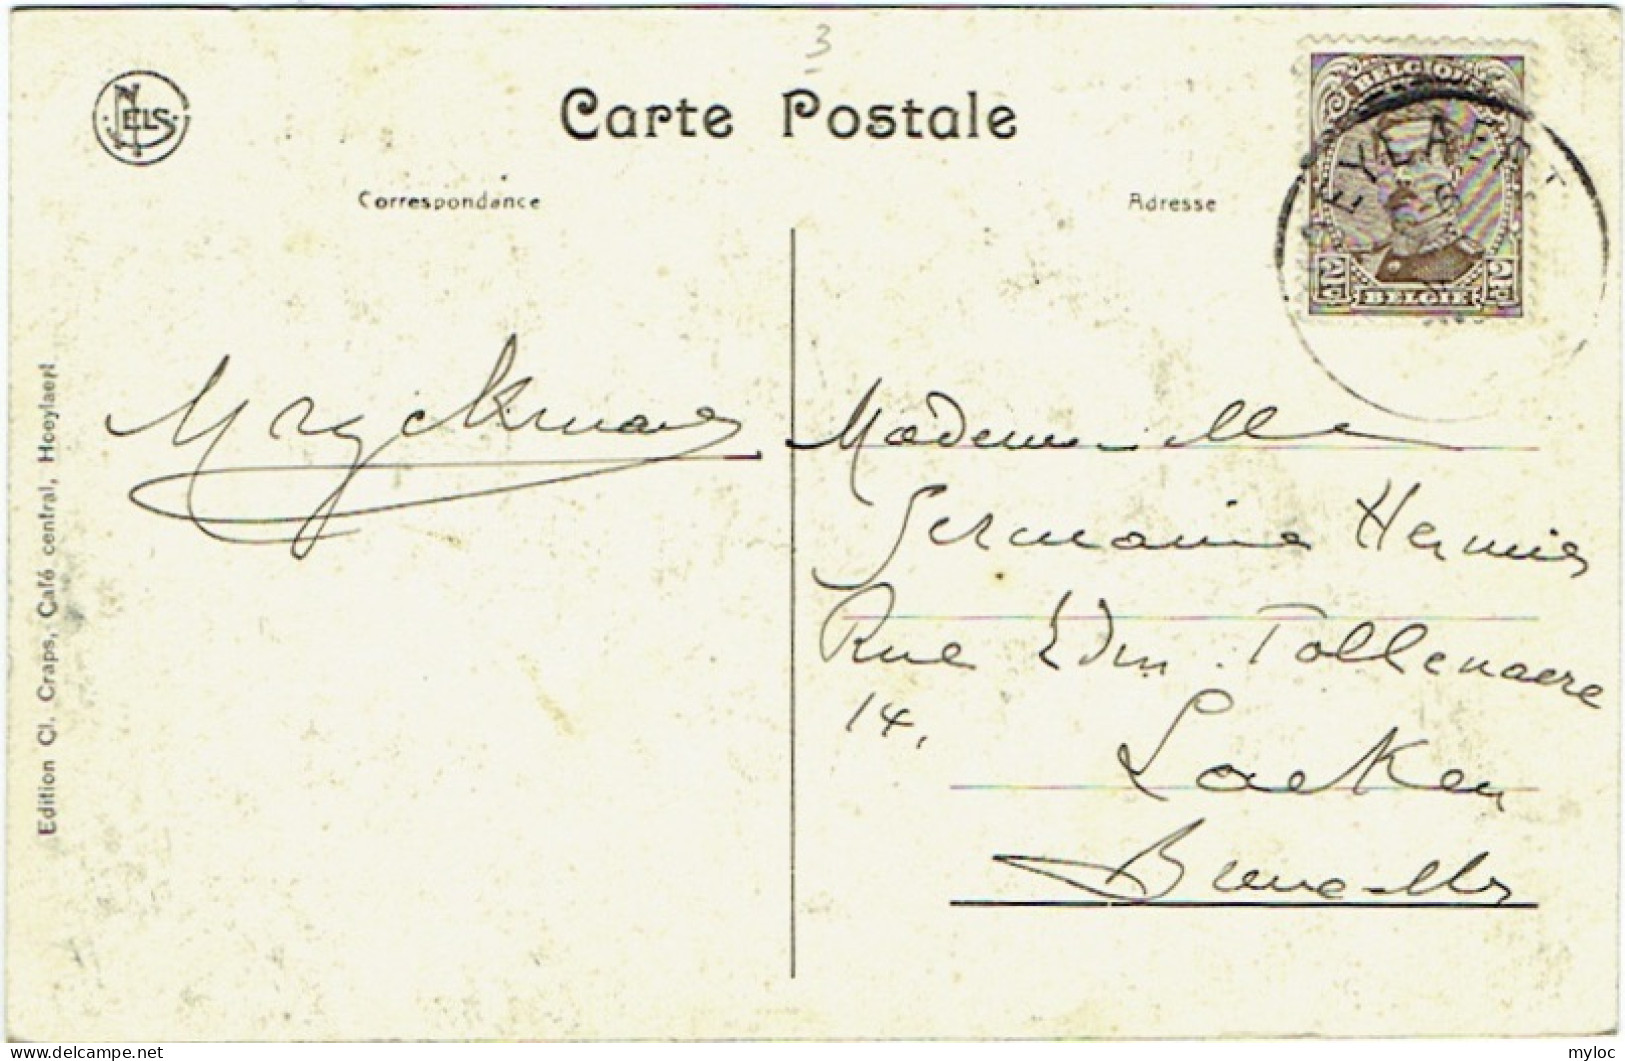 3
NELS
Carte Postale
Correspondance
Adresse
BELGIQUE
BELGIE
Edition Cl. Craps, Café central, Hoeylaert
Mademoiselle
Germaine Hermies
Rue Edm. Tollenaere
14.
Laeken
Bruxelles
myloc